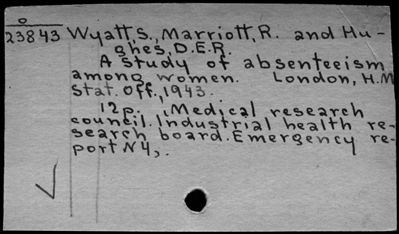 o
23843 Wyatt, S., Marriott, R. and Hu-
ghes, D.E.R.
A study of absenteeism
among women. London, H.M
stat. Off., 1943.
12 p. (Medical research
council. Industrial health re-
search board. Emergency re-
port N4,.